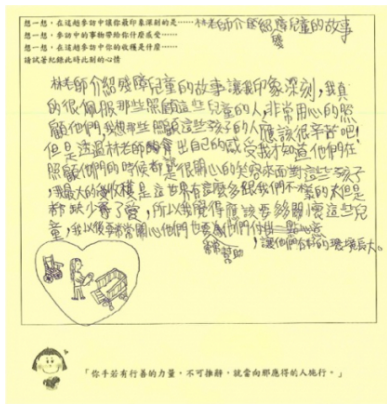 想一想，在這趟參訪中讓你最印象深刻的是……林老師介紹殘障兒童的故事
想一想，參訪中的事物帶給你什麼感受……
想一想，在這趟參訪中你的收穫是什麼……
請試著紀錄此時此刻的心情
林老師介紹殘障兒童的故事讓我印象深刻，我真
的很佩服那些照顧這些兒童的人，非常用心的照
顧他們，我想那些照顧這些孩子的人應該很辛苦吧！
但是透過林老師的 出自己的感受我才知道他們在
照顧他們的時候都是很開心的笑容來面對這些孩子
，我最大的收穫是這世界有這麼多跟我們不一樣的人但是
都缺少了愛，所以我覺得應該要多關懷這些兒
童，我以後 常關心他們也要為他們付出一點心
幫助，讓他們在好的環境長大。
「你手若有行善的力量，不可推辭，就當向那應得的人施行。」